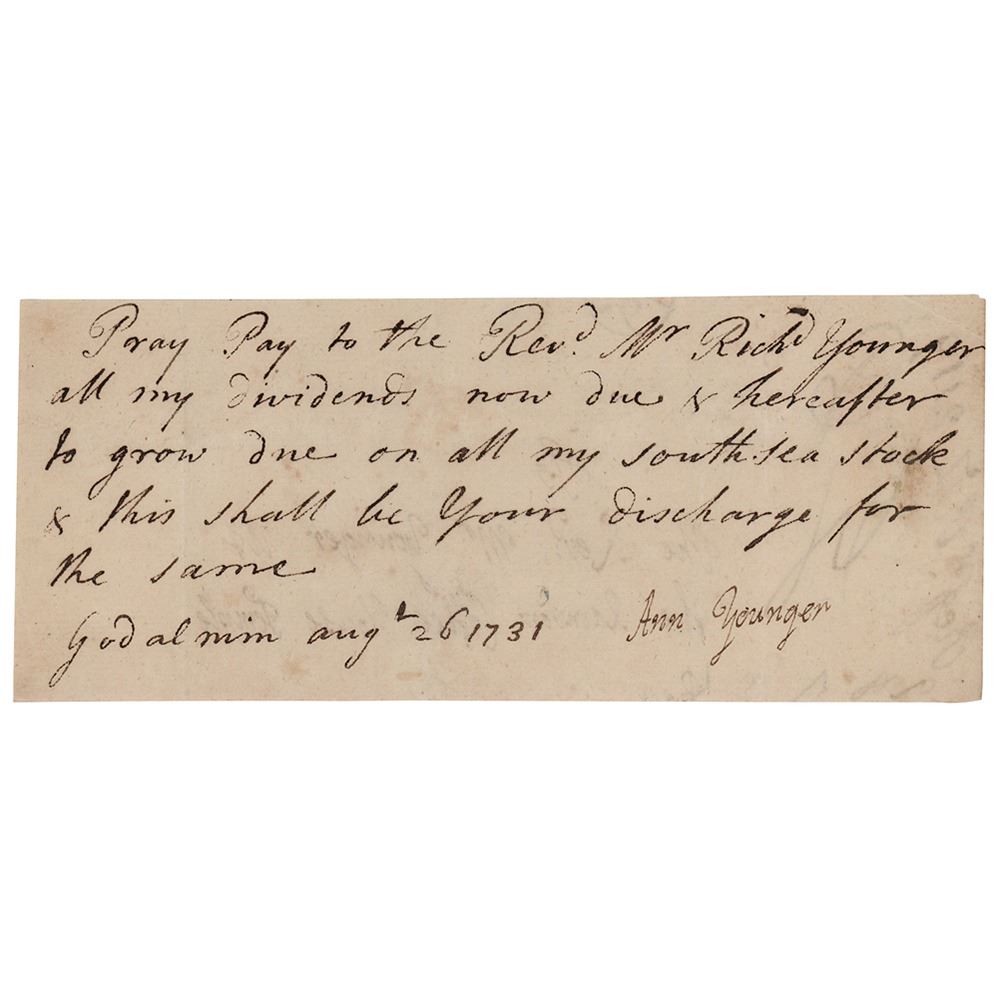 Pray Pay to the Rev.d Mr Richd Younger
all my dividends now due & hereafter
to grow due on all my southsea stock
& this shall be Your discharge for
the same
Godalmin augt 26 1731 Ann Younger